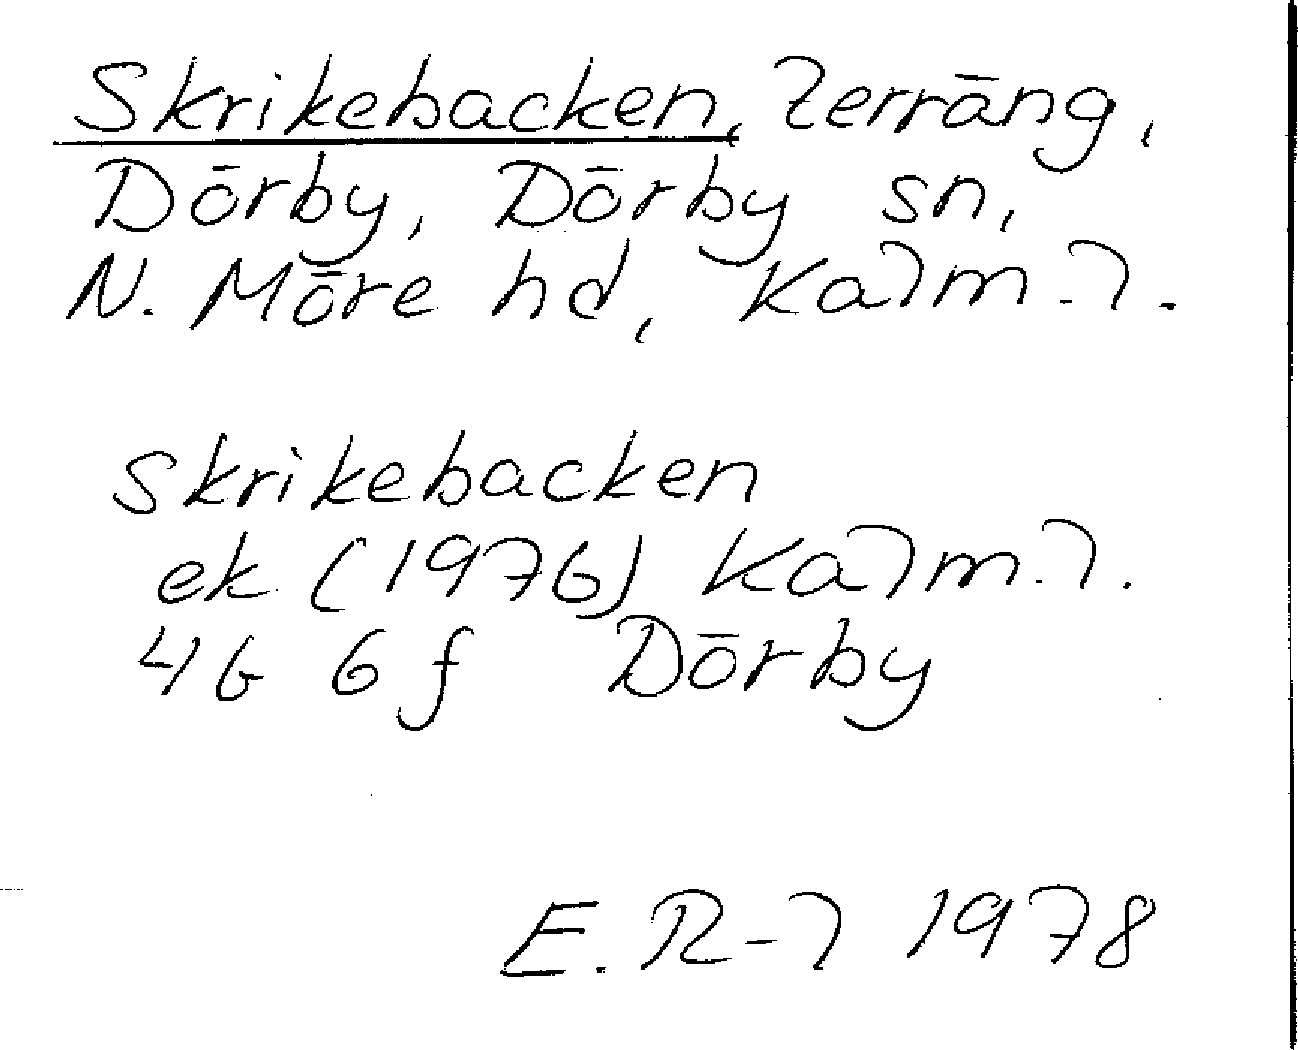 Skrikebacken, Terräng,
Dörby, Dörby sn,
N. Möre hd, Kalm. l.
Skrikebacken
ek (1976) Kalm. l.
4G 6f Dörby
E. R-l 1978